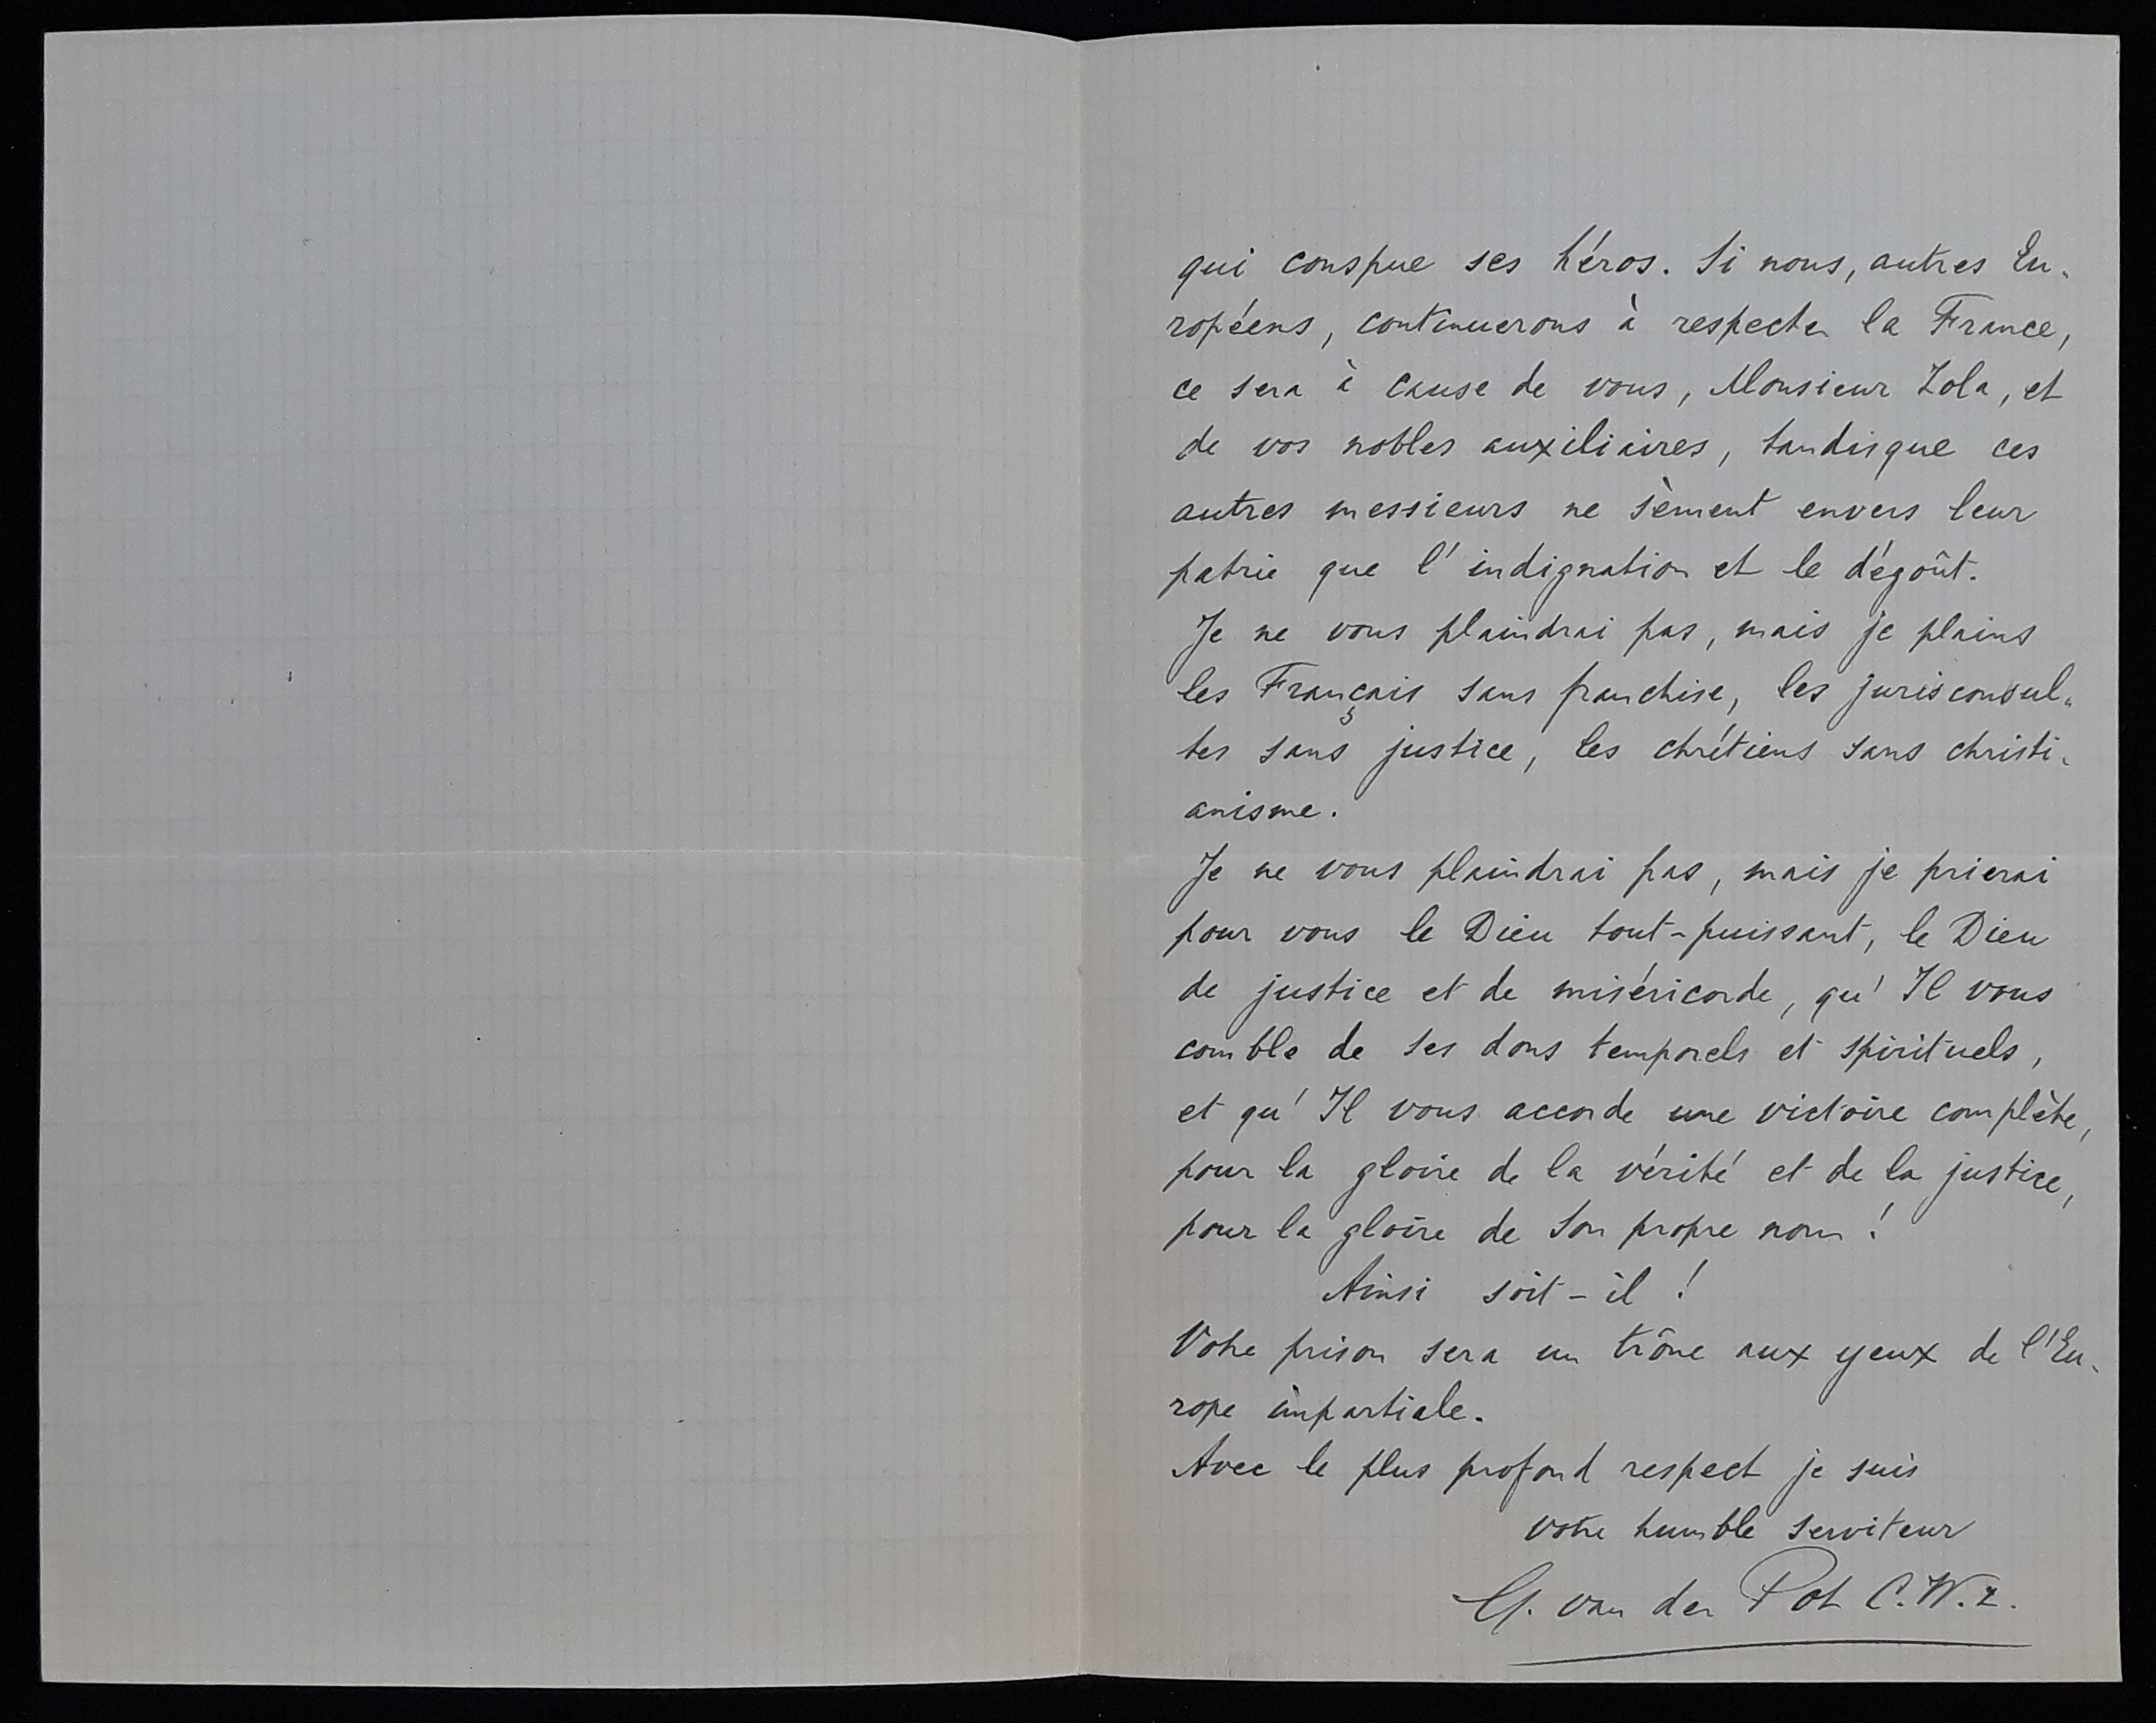 qui conspue ses héros. Si nous, autres Eu-
ropéens, continuerons à respecter la France,
ce sera à cause de vous, Monsieur Zola, et
de vos nobles auxiliaires, tandisque ces
autres messieurs ne sèment envers leur
patrie que l'indignation et le dégoût.
Je ne vous plaindrai pas, mais je plains
les Français sans franchise, les jurisconsul-
tes sans justice, les chrétiens sans christi-
anisme.
Je ne vous plaindrai pas, mais je prierai
pour vous le Dieu tout-puissant, le Dieu
de justice et de miséricorde, qu'Il vous
comble de ses dons temporels et spirituels,
et qu'Il vous accorde une victoire complète,
pour la gloire de la vérité et de la justice,
pour la gloire de Son propre nom!
Ainsi soit-il!
Votre prison sera un trône aux yeux de l'Eu-
rope impartiale.
Avec le plus profond respect je suis
votre humble serviteur
van der Pot C.W.z.